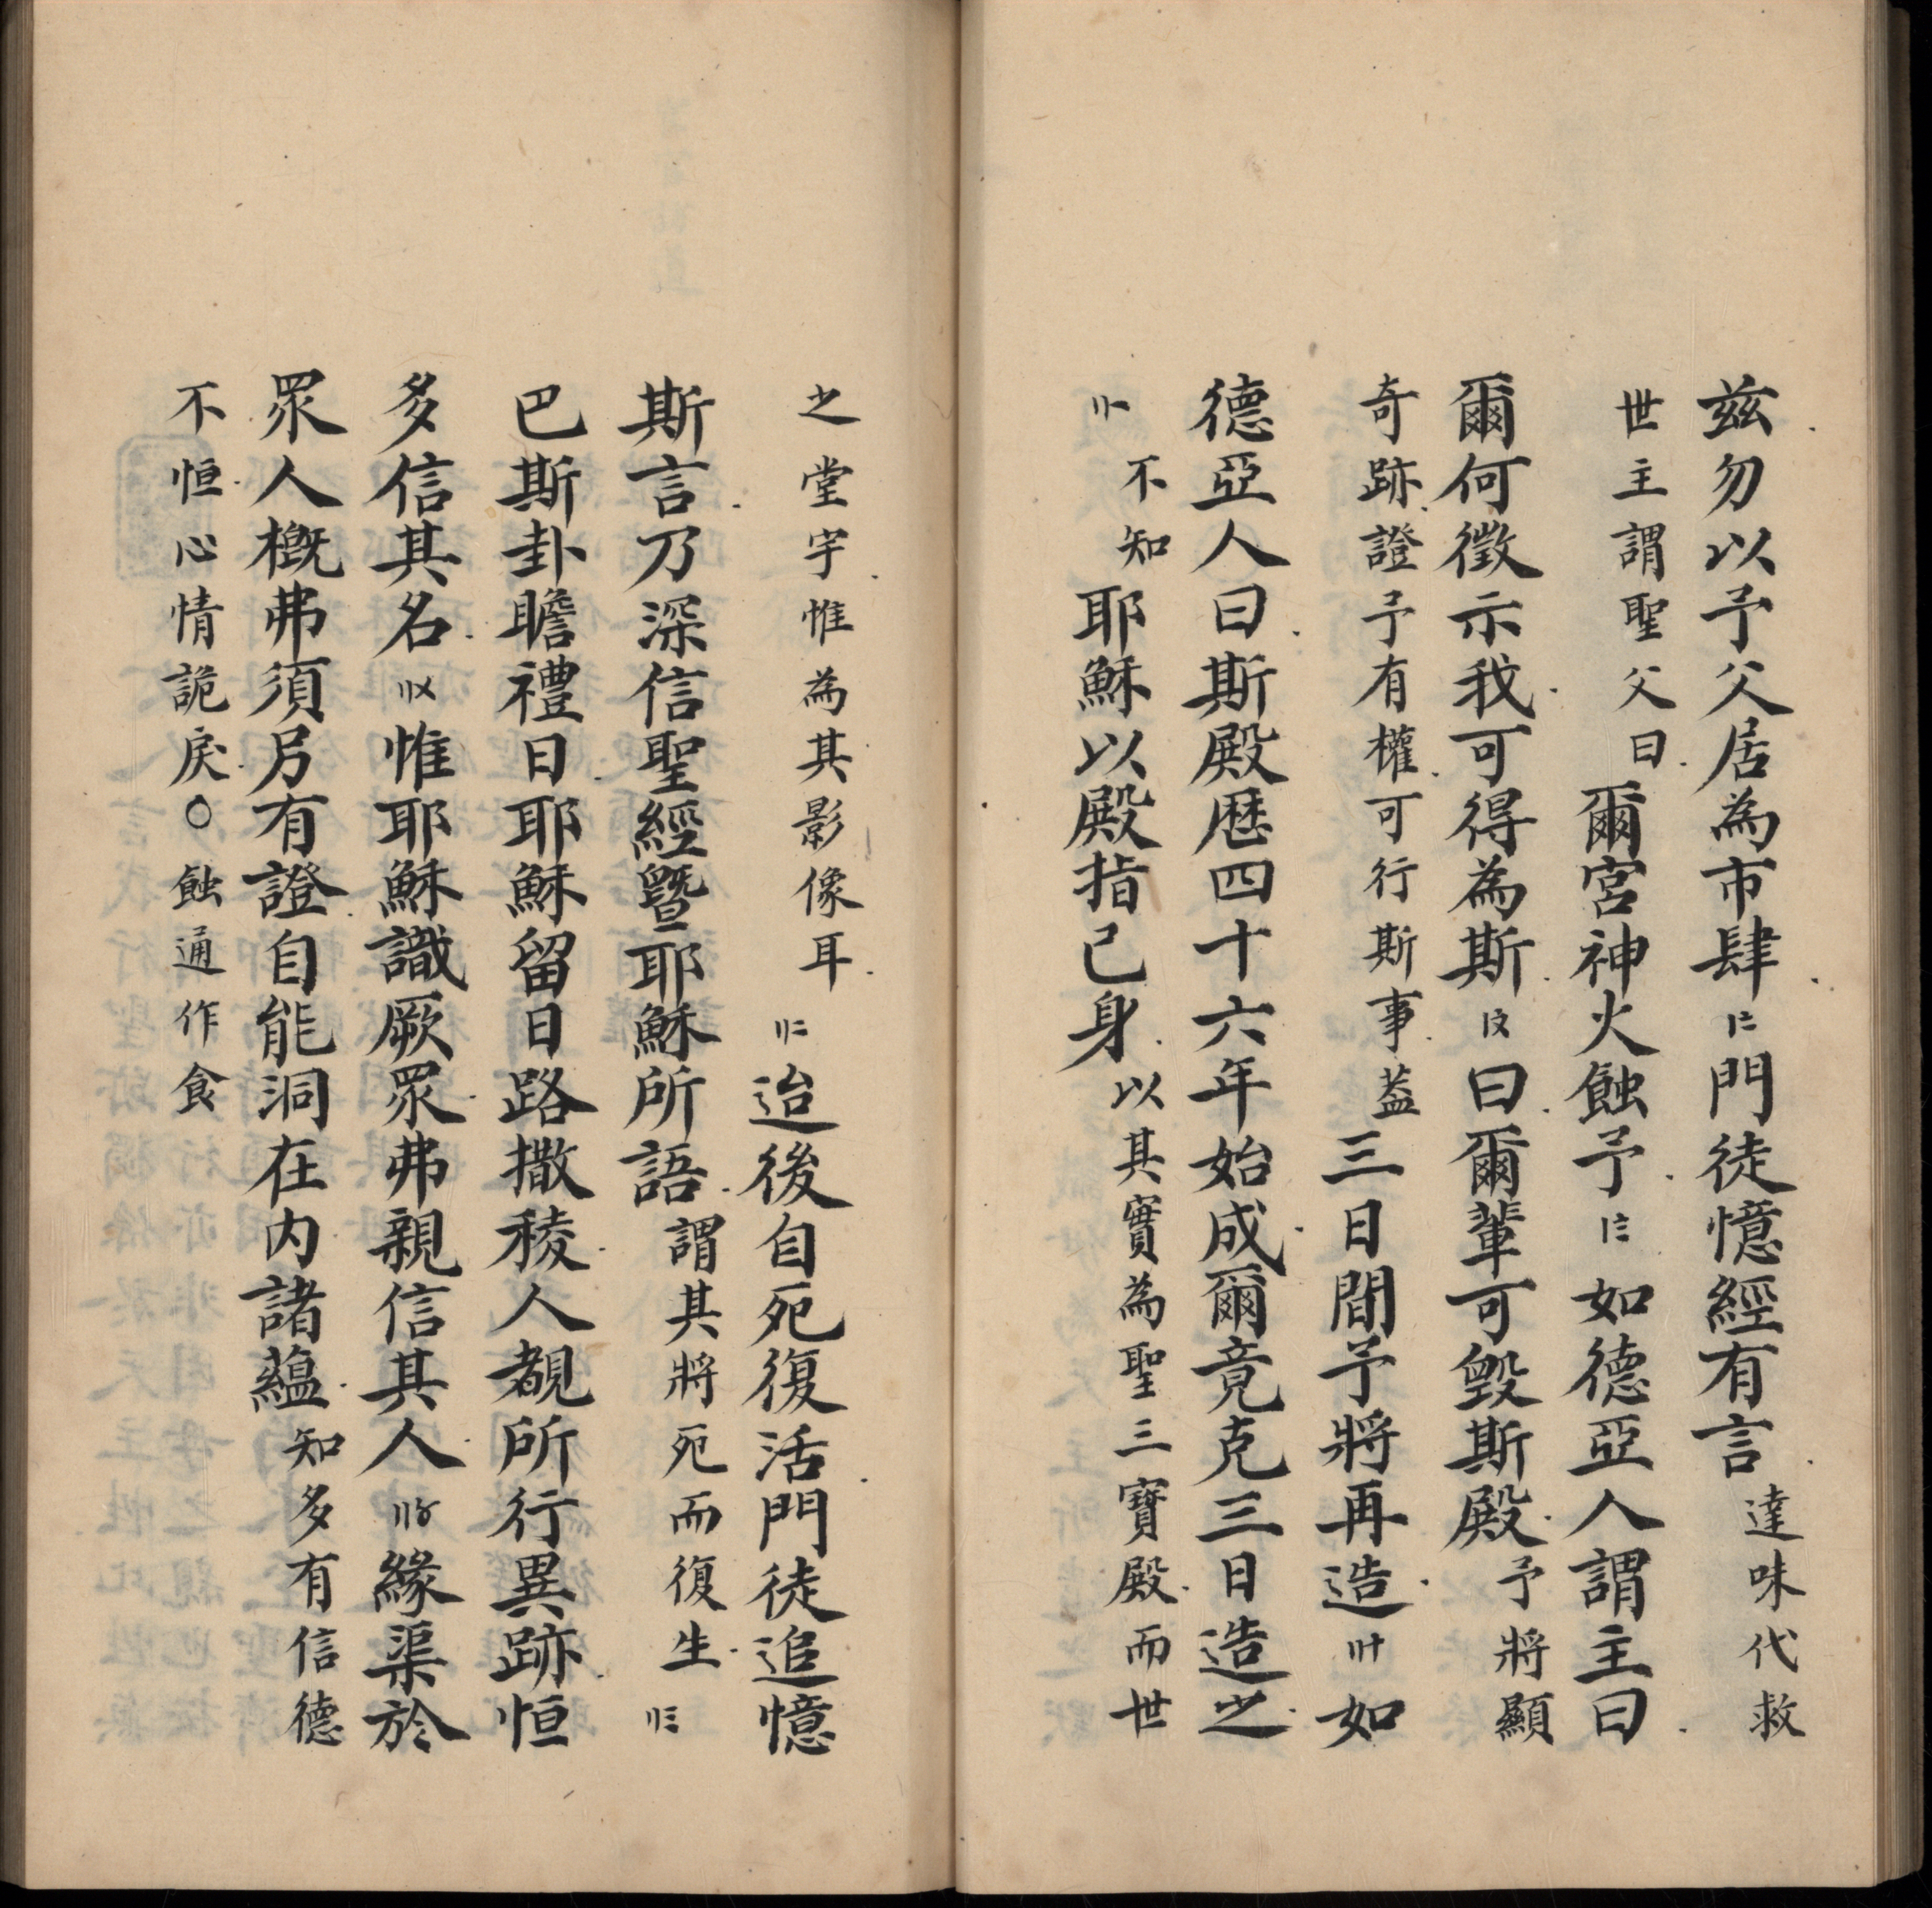 玆勿以予父居為市肆〡二門徒憶經有言達味代救
世主謂聖父曰爾宮神火蝕予〡三如德亞人謂主曰
爾何徵示我可得為斯〡〤曰爾輩可毀斯殿予將顯
奇跡證予有權可行斯事葢三日間予將再造〢十如
德亞人曰斯殿歷四十六年始成爾竟克三日造之
〢〡不知耶穌以殿指己身以其實為聖三寶殿而世
之堂宇惟為其影像耳〢二迨後自死復活門徒追憶
斯言乃深信聖經暨耶穌所語謂其將死而復生〢三
巴斯卦瞻禮日耶穌留日路撒稜人覩所行異跡恒
多信其名〢〤惟耶穌識厥眾弗親信其人〢〥緣渠於
眾人概弗須另有證自能洞在内諸蘊知多有信德
不恒心情詭戾○蝕通作食